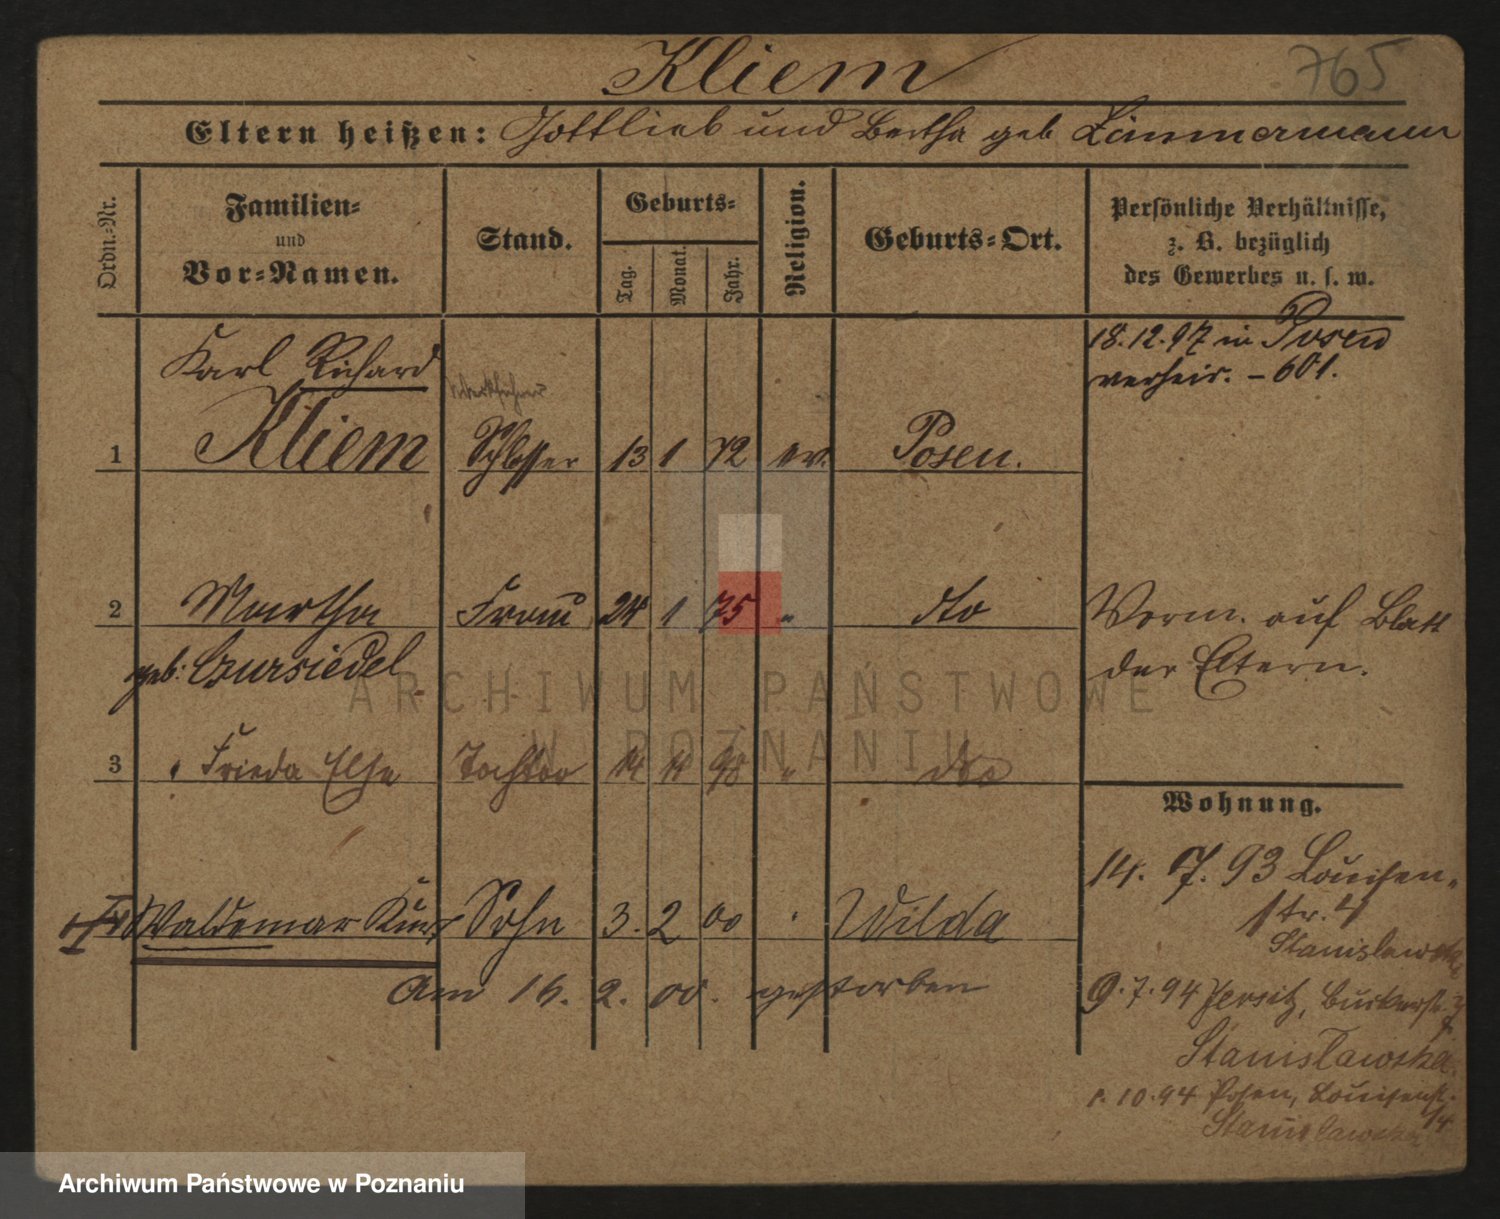 Kliem
765
Eltern heißen: Gottlieb und Bertha geb Zimmermann
Ordn.-Nr.
Familien-
und
Vor-Namen.
Stand.
Geburts-
Tag. Monat. Jahr.
Religion.
Geburts-Ort.
Persönliche Verhältnisse,
z. B. bezüglich
des Gewerbes u. s. w.
18.12.97 in Posen
verheir. - 601.
Karl Richard
Werkführer
1 Kliem Schlosser 13 1 72 ev. Posen.
2 Martha Frau 24 1 75 " dto
Verm. auf Blatt
der Eltern.
geb:
ARCHIWUM PAŃSTWOWE
W POZNANIU
3 Frieda Else Tochter 14 11 98 " dto
Wohnung.
14. 7. 93 Louisen-
str. 4
Stanislawska
4 Waldemar Kurt Sohn 3. 2 00 " Wilda
Am 16. 2. 00. gestorben
9.7.94 Jersitz,
Stanislawska
1.10.94 Posen, Louisenst.
14
Stanislawska
Archiwum Państwowe w Poznaniu